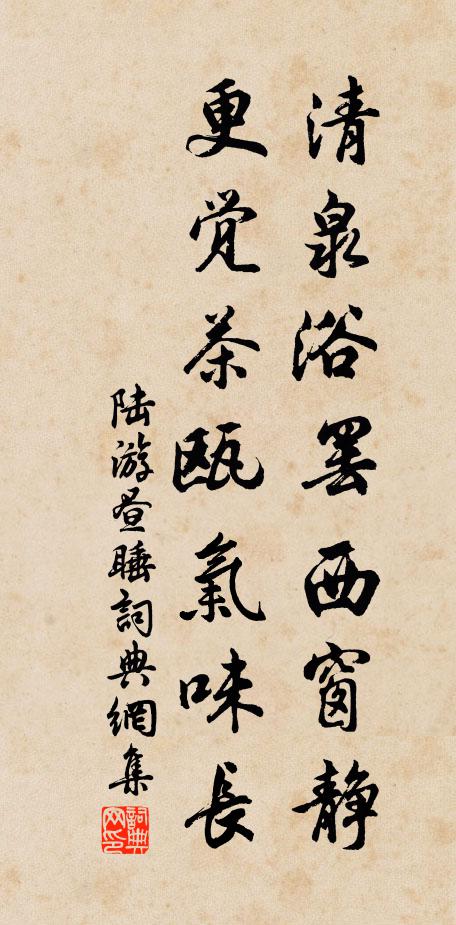 清泉浴罢西窗静
更觉茶瓯氣味長
陆游昼睡詞典網集
詞典网印